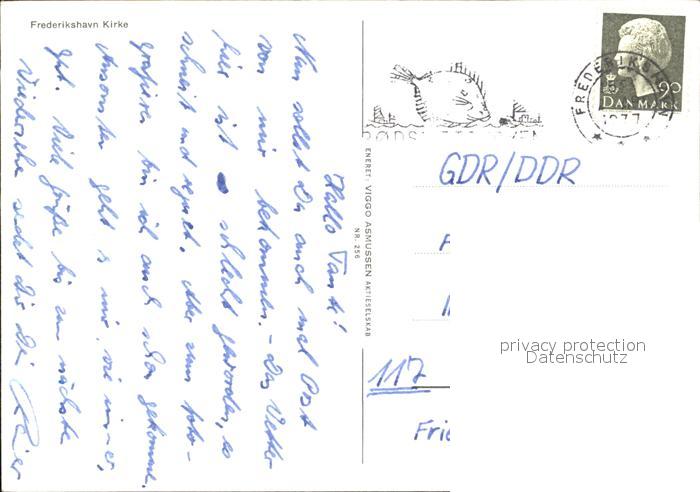 Frederikshavn Kirke
Hallo Tante!
Nun sollst Du auch mal Post
von mir bekommen. - Das Wetter
hier ist schlecht geworden, es
schneit und regnet. Aber zum foto-
grafieren bin ich auch schon gekommen.
Ansonsten geht's mir, wie immer,
gut. Viele Grüße bis zum nächsten
Wiedersehn sendet dir Dein
ENERET: VIGGO ASMUSSEN AKTIESELSKAB
NR. 256
90
DANMARK
FREDERIKSHAVN
1977
GDR/DDR
117
Frie
privacy protection
Datenschutz